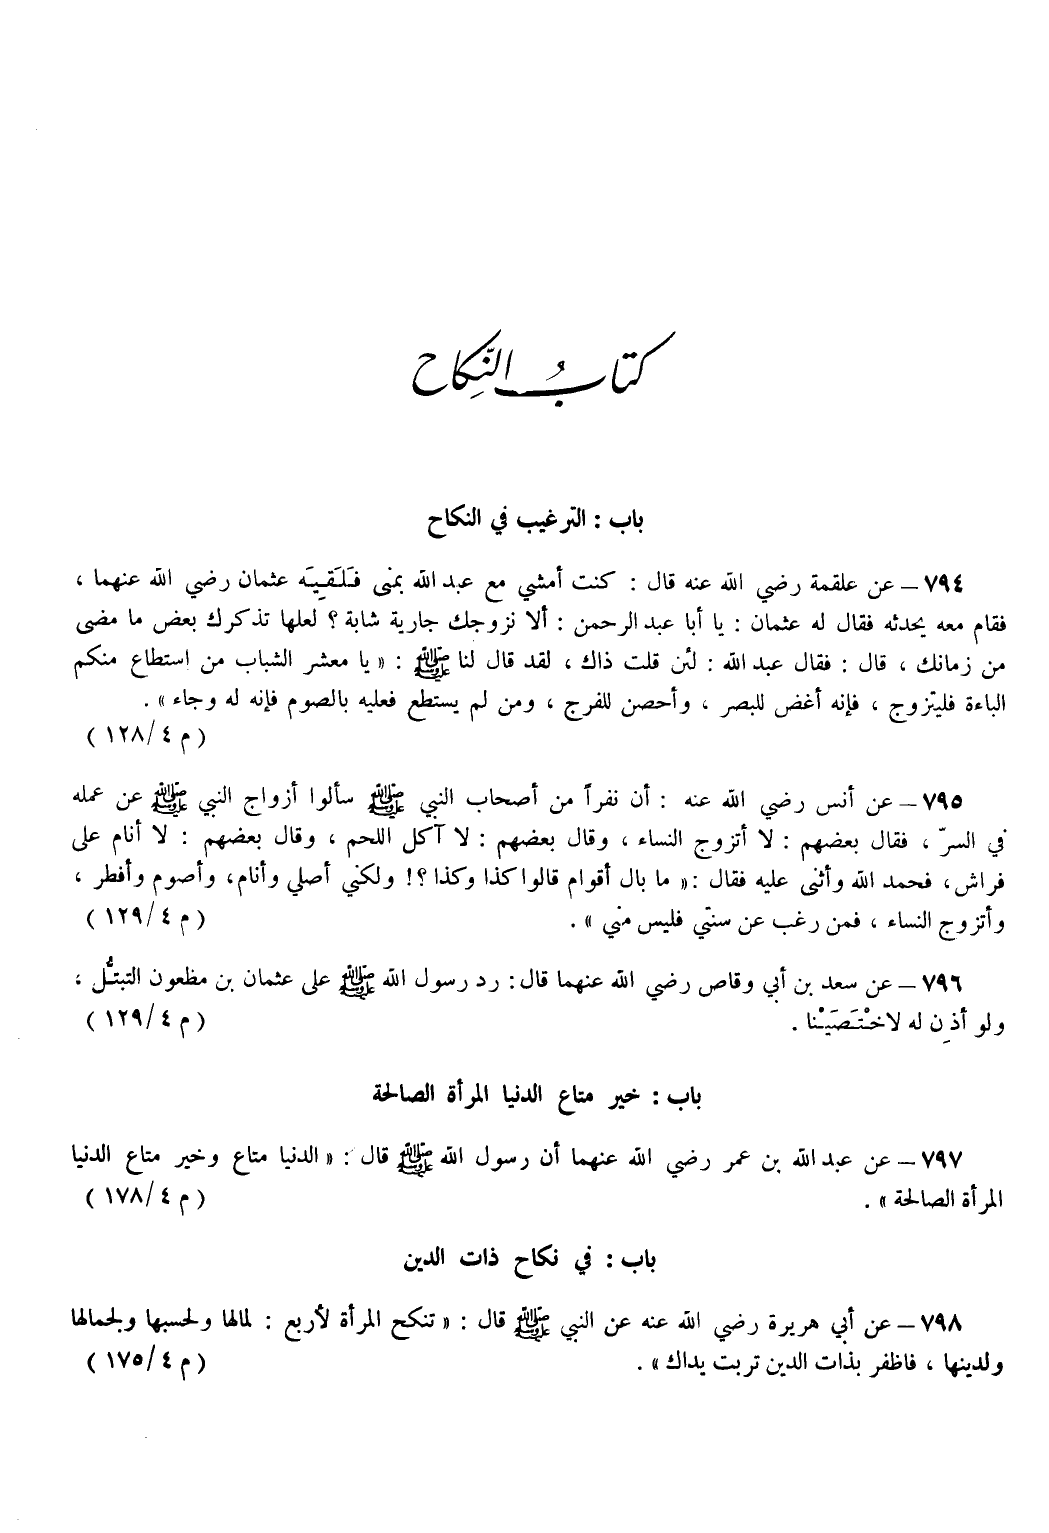 كتابُ النِّكاح
باب : الترغيب في النكاح
٧٩٤ ــ عن علقمة رضي الله عنه قال : كنت أمشي مع عبد الله بمنى فَـلَـقِـيَـه عثمان رضي الله عنهما ،
فقام معه يحدثه فقال له عثمان : يا أبا عبد الرحمن : ألا نزوجك جارية شابة ؟ لعلها تذكرك بعض ما مضى
من زمانك ، قال : فقال عبد الله : لئن قلت ذاك ، لقد قال لنا ﷺ : « يا معشر الشباب من استطاع منكم
الباءة فليتزوج ، فإنه أغض للبصر ، وأحصن للفرج ، ومن لم يستطع فعليه بالصوم فإنه له وجاء » .
( م ٤/١٢٨ )
٧٩٥ ــ عن أنس رضي الله عنه : أن نفراً من أصحاب النبي ﷺ سألوا أزواج النبي ﷺ عن عمله
في السرّ ، فقال بعضهم : لا أتزوج النساء ، وقال بعضهم : لا آكل اللحم ، وقال بعضهم : لا أنام على
فراش ، فحمد الله وأثنى عليه فقال : « ما بال أقوام قالوا كذا وكذا ؟! ولكني أصلي وأنام، وأصوم وأفطر ،
وأتزوج النساء ، فمن رغب عن سنتي فليس مني » . ( م ٤/١٢٩ )
٧٩٦ ــ عن سعد بن أبي وقاص رضي الله عنهما قال : رد رسول الله ﷺ على عثمان بن مظعون التبتُّل ،
ولو أذِن له لاخْتَصَيْنا . ( م ٤/١٢٩ )
باب : خير متاع الدنيا المرأة الصالحة
٧٩٧ ــ عن عبد الله بن عمر رضي الله عنهما أن رسول الله ﷺ قال : « الدنيا متاع وخير متاع الدنيا
المرأة الصالحة » . ( م ٤/١٧٨ )
باب : في نكاح ذات الدين
٧٩٨ ــ عن أبي هريرة رضي الله عنه عن النبي ﷺ قال : « تنكح المرأة لأربع : لمالها ولحسبها ولجمالها
ولدينها ، فاظفر بذات الدين تربت يداك » . ( م ٤/١٧٥ )